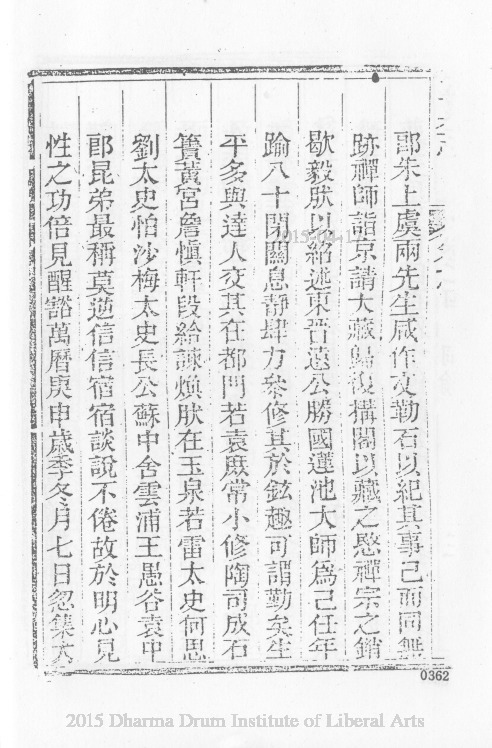 鄖朱上虞兩先生咸作文勒石以紀其事已而同無
跡禪師詣京請大藏歸復搆閣以藏之愍禪宗之銷
歇毅肰以紹述東晋遠公勝國蓮池大師爲己任年
踰八十閉關息靜肆力叅修其於鉉趣可謂勤矣生
平多與達人交其在都門若袁庶常小修陶司成石
簣黃宮詹愼軒段給諫煥肰在玉泉若雷太史何思
劉太史怕沙梅太史長公蘇中舍雲浦王愚谷袁中
郎昆弟最稱莫逆信信宿宿談說不倦故於明心見
性之功倍見醒豁萬曆庚申歲季冬月七日忽集大
0362
2015 Dharma Drum Institute of Liberal Arts